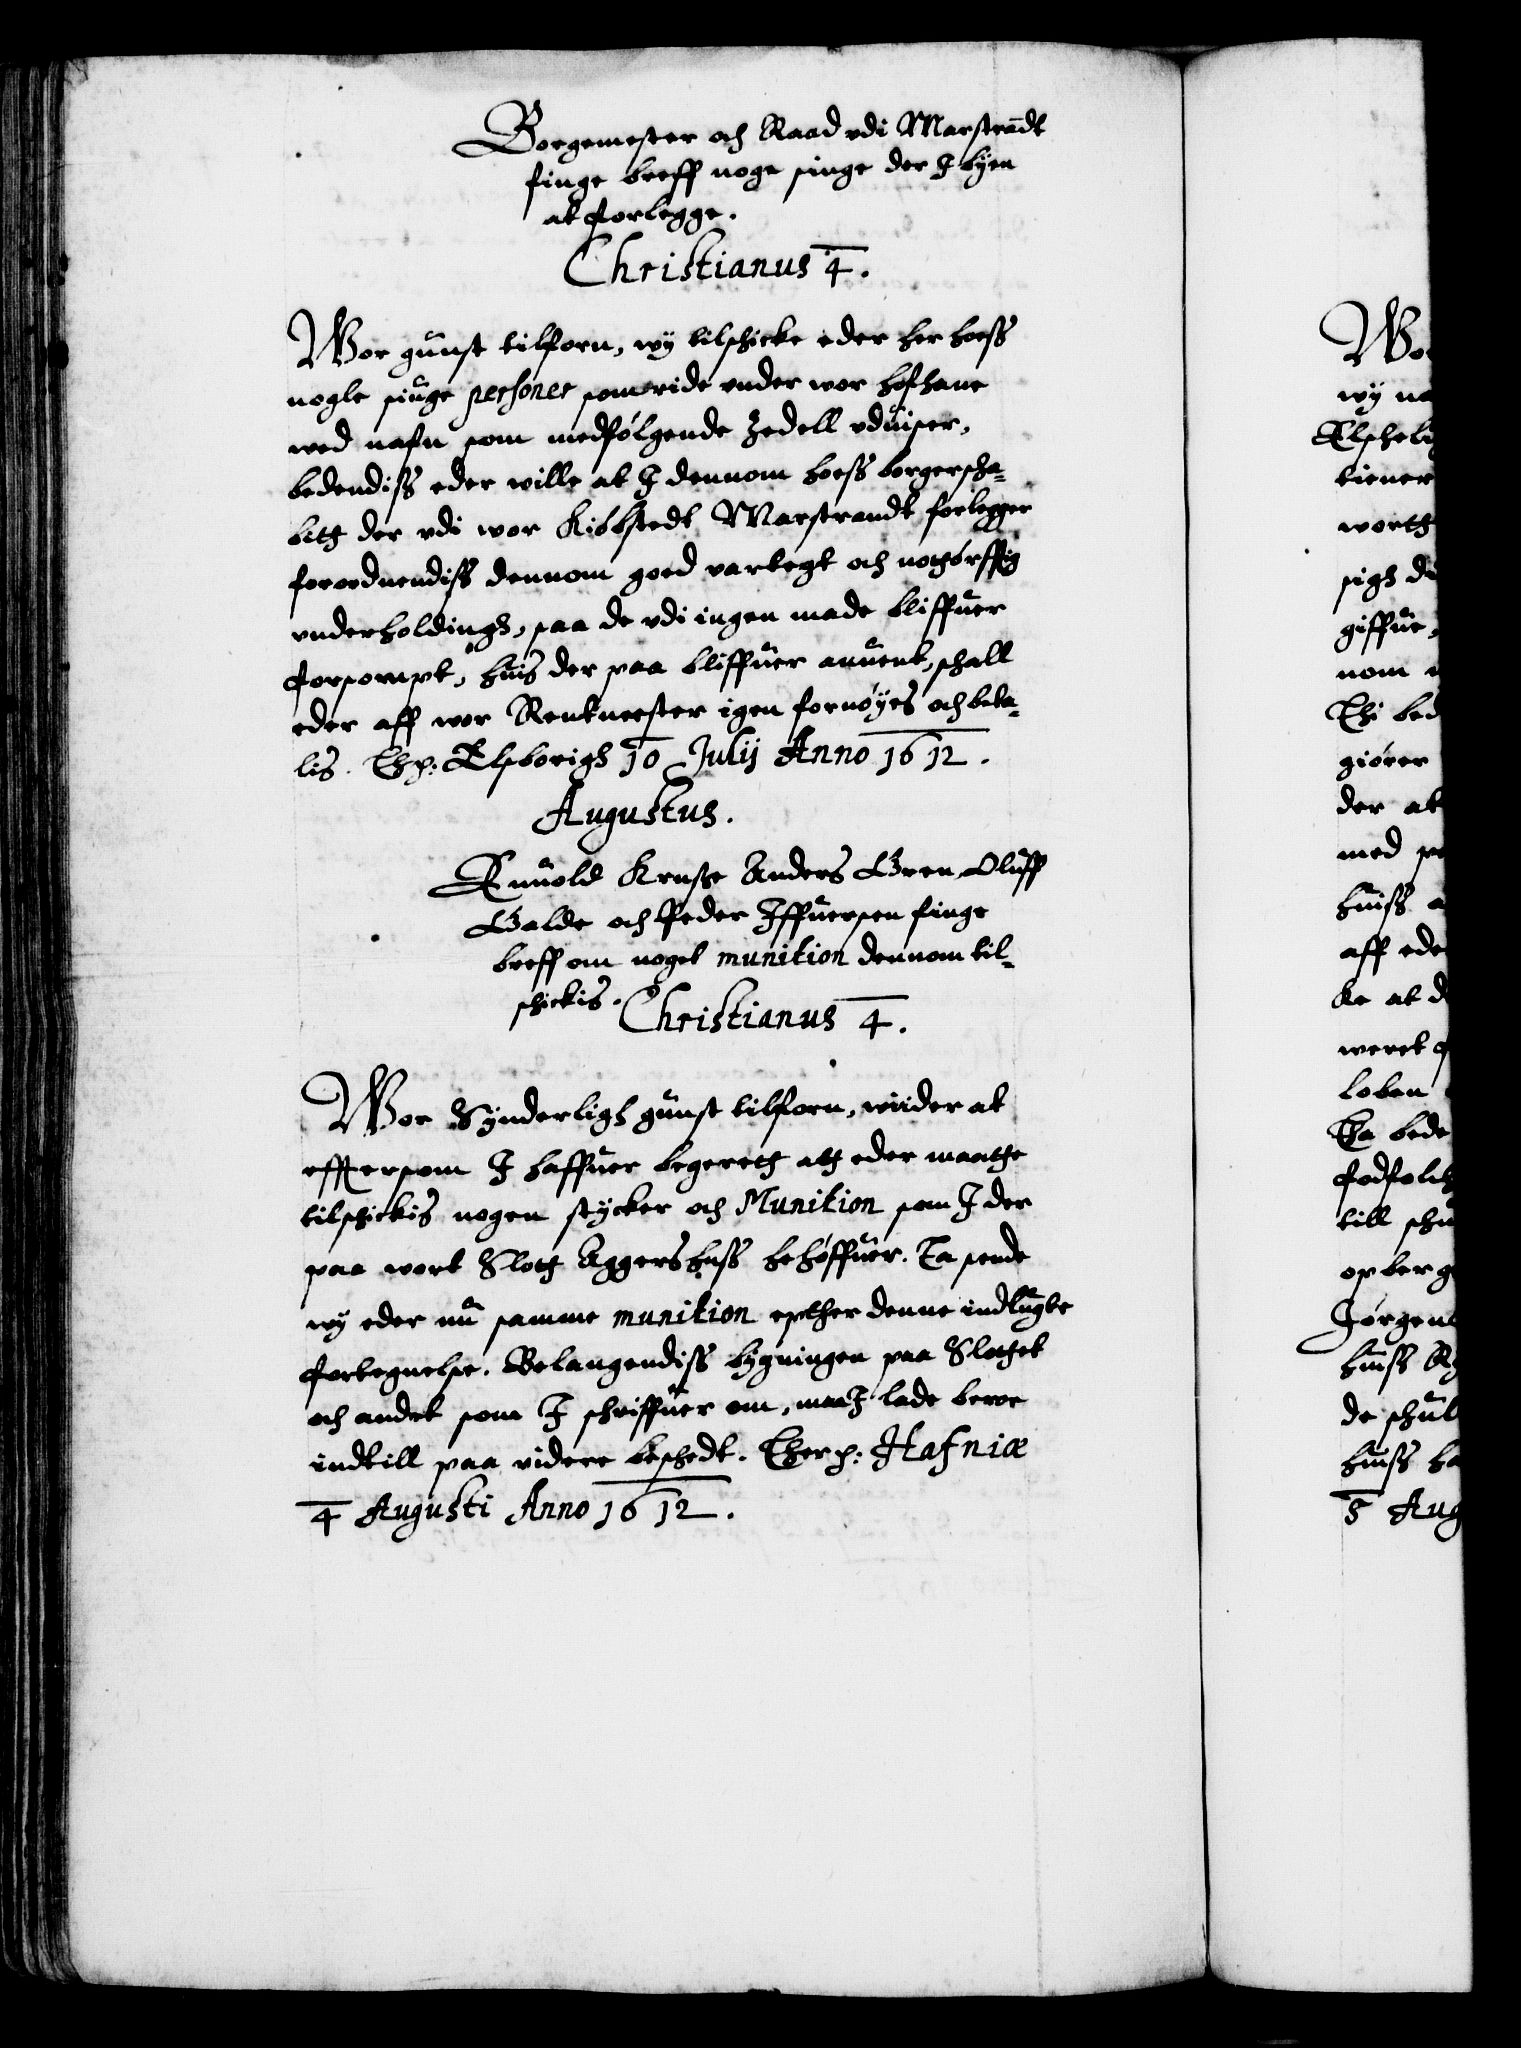 Borgemester och Raad vdi Marstrandt
finge breff noge siuge der J byen
at forlegge.
Christianus 4.
Wor gunst tilforn, wy tilschicke eder her hoess
nogle siuge personer som ride vnder wor hoffane
wed nafn som medfølgende zedell vduiser,
bedendiss eder wille at J dennom hoess borgerscha-
bith der vdi wor Kiøbstedt Marstrandt forlegger
forordnendiss dennom goed vartegt och nothørfftig
vnderholdingh, saa de vdi ingen made bliffuer
forsompt, huis der paa bliffuer anuent, schall
eder aff wor Rentmester igen fornøyes och beta-
lis. Thj. Elsborigh 10 Julij Anno 1612.
Augustus.
Enuold Kruse Anders Green Oluff
Galde och Peder Jffuersen finge
breff om noget munition dennom til-
schickis.
Christianus 4.
Wor Synderligh gunst tilforn, wiider at
efftersom J haffuer begereth ath eder maatte
tilschickis nogen stycker och Munition som J der
paa wort Sloth Aggershuss behøffuer. Ta sende
wy eder nu samme munition epther denne indlugte
fortegnelse. Belangendiss bygningen paa Slothet
och andet som J schriffuer om, maa J lade beroe
indtill paa videre beschedt. Ther. Hafniæ
4 Augusti Anno 1612.
Wor
wy
Elsheli
tiener
worth
sigh
giffue,
nom
Thi bed
giører
der at
med
huiss
aff eder
ke at
weret
loben
Ta bede
fodfolch
till
op
Jørgen
huiss
de schul
huiss
8 Aug